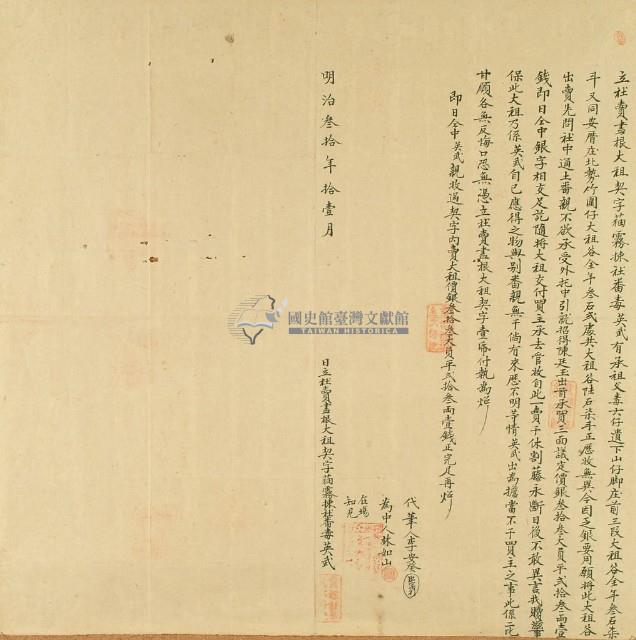 立杜賣盡根大租契字蔴霧捒社番毒英武有承祖父毒六仔遺下山仔脚庄前三段大租谷全年叁石柒
斗又同安厝庄北勢竹圍仔大租谷全年叁石弍處共大租谷陸石柒斗正應收無異今因乏銀要用願將此大租谷
出賣先問社中通土番親不欲承受外托中引就招得陳廷玉出首承買三面議定價銀叁拾叁大員平弍拾叁兩壹
錢即日仝中銀字相交足訖隨將大租交付買主永去管收自此一賣千休割藤永斷日後不敢異言找贖滋事
保此大租乃係英武自己應得之物與別番親無干倘有來歷不明等情英武出為擔當不干買主之事此係二比
甘願各無反悔口恐無憑立杜賣盡根大租契字壹帋付執為炤
即日仝中英武親收過契字內賣大租價銀叁拾叁大員平弍拾叁兩壹錢正完足再炤
代筆人李安發
為中人林如山
在場知見
明治叁拾年拾壹月
日立杜賣盡根大租契字蔴霧捒社番毒英武
國史館臺灣文獻館
TAIWAN HISTORICA